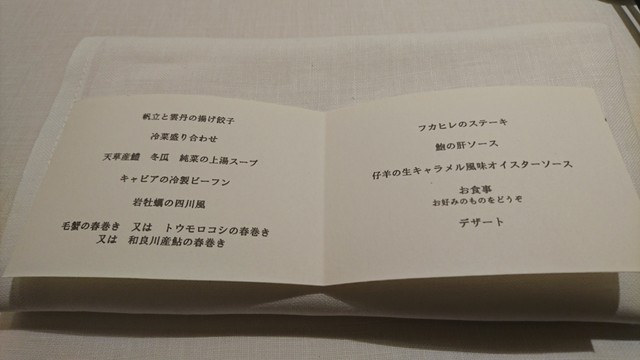 帆立と雲丹の揚げ餃子
冷菜盛り合わせ
天草産鱧　冬瓜　純菜の上湯スープ
キャビアの冷製ビーフン
岩牡蠣の四川風
毛蟹の春巻き　又は　トウモロコシの春巻き
又は　和良川産鮎の春巻き
フカヒレのステーキ
鮑の肝ソース
仔羊の生キャラメル風味オイスターソース
お食事
お好みのものをどうぞ
デザート